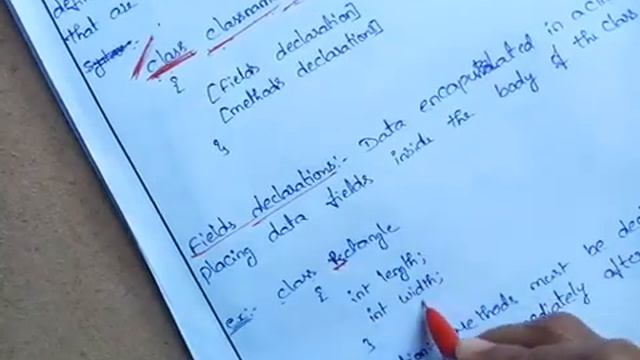 that are
Class classnam
{ [Fields declaration]
[methods declarations]
}
Fields declarations:- Data encapsulated in a cl
placing data fields inside the body of the class
ex:- class Rectangle
{ int length;
int width;
}
methods must be de
immediately after